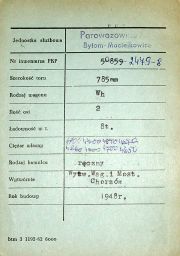 Jednostka służbowa Parowozow
Bytom-Maciejkowice
Nr inwentarza PKP 50859 2479-8
Szerokość toru 785mm
Rodzaj wagonu Wh
Ilość osi 2
Ładowność w t. 8t.
Ciężar własny
Rodzaj hamulca ręczny
Wytwórnia Wytw.Wag.i Most.
Chorzów
Rok budowy 1948r.